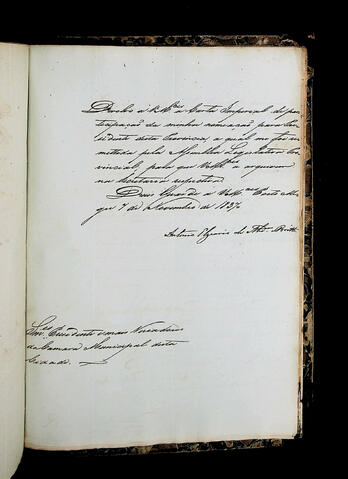 Devolvo á V. M.ces a Carta Imperial de par-
ticipação da minha nomeação para Pre-
sidente desta Provincia, a qual me foi re-
mettida pela Assemblea Legislativa Pro-
vincial, para que V. M.ces arquivem
na Secretaria respectiva.
Deos Guarde á V. M.ces Porto Ale-
gre 7 de Novembro de 1837.
Antonio
Snr.es Presidente e mais Vereadores
da Camara Municipal desta
Cidade.